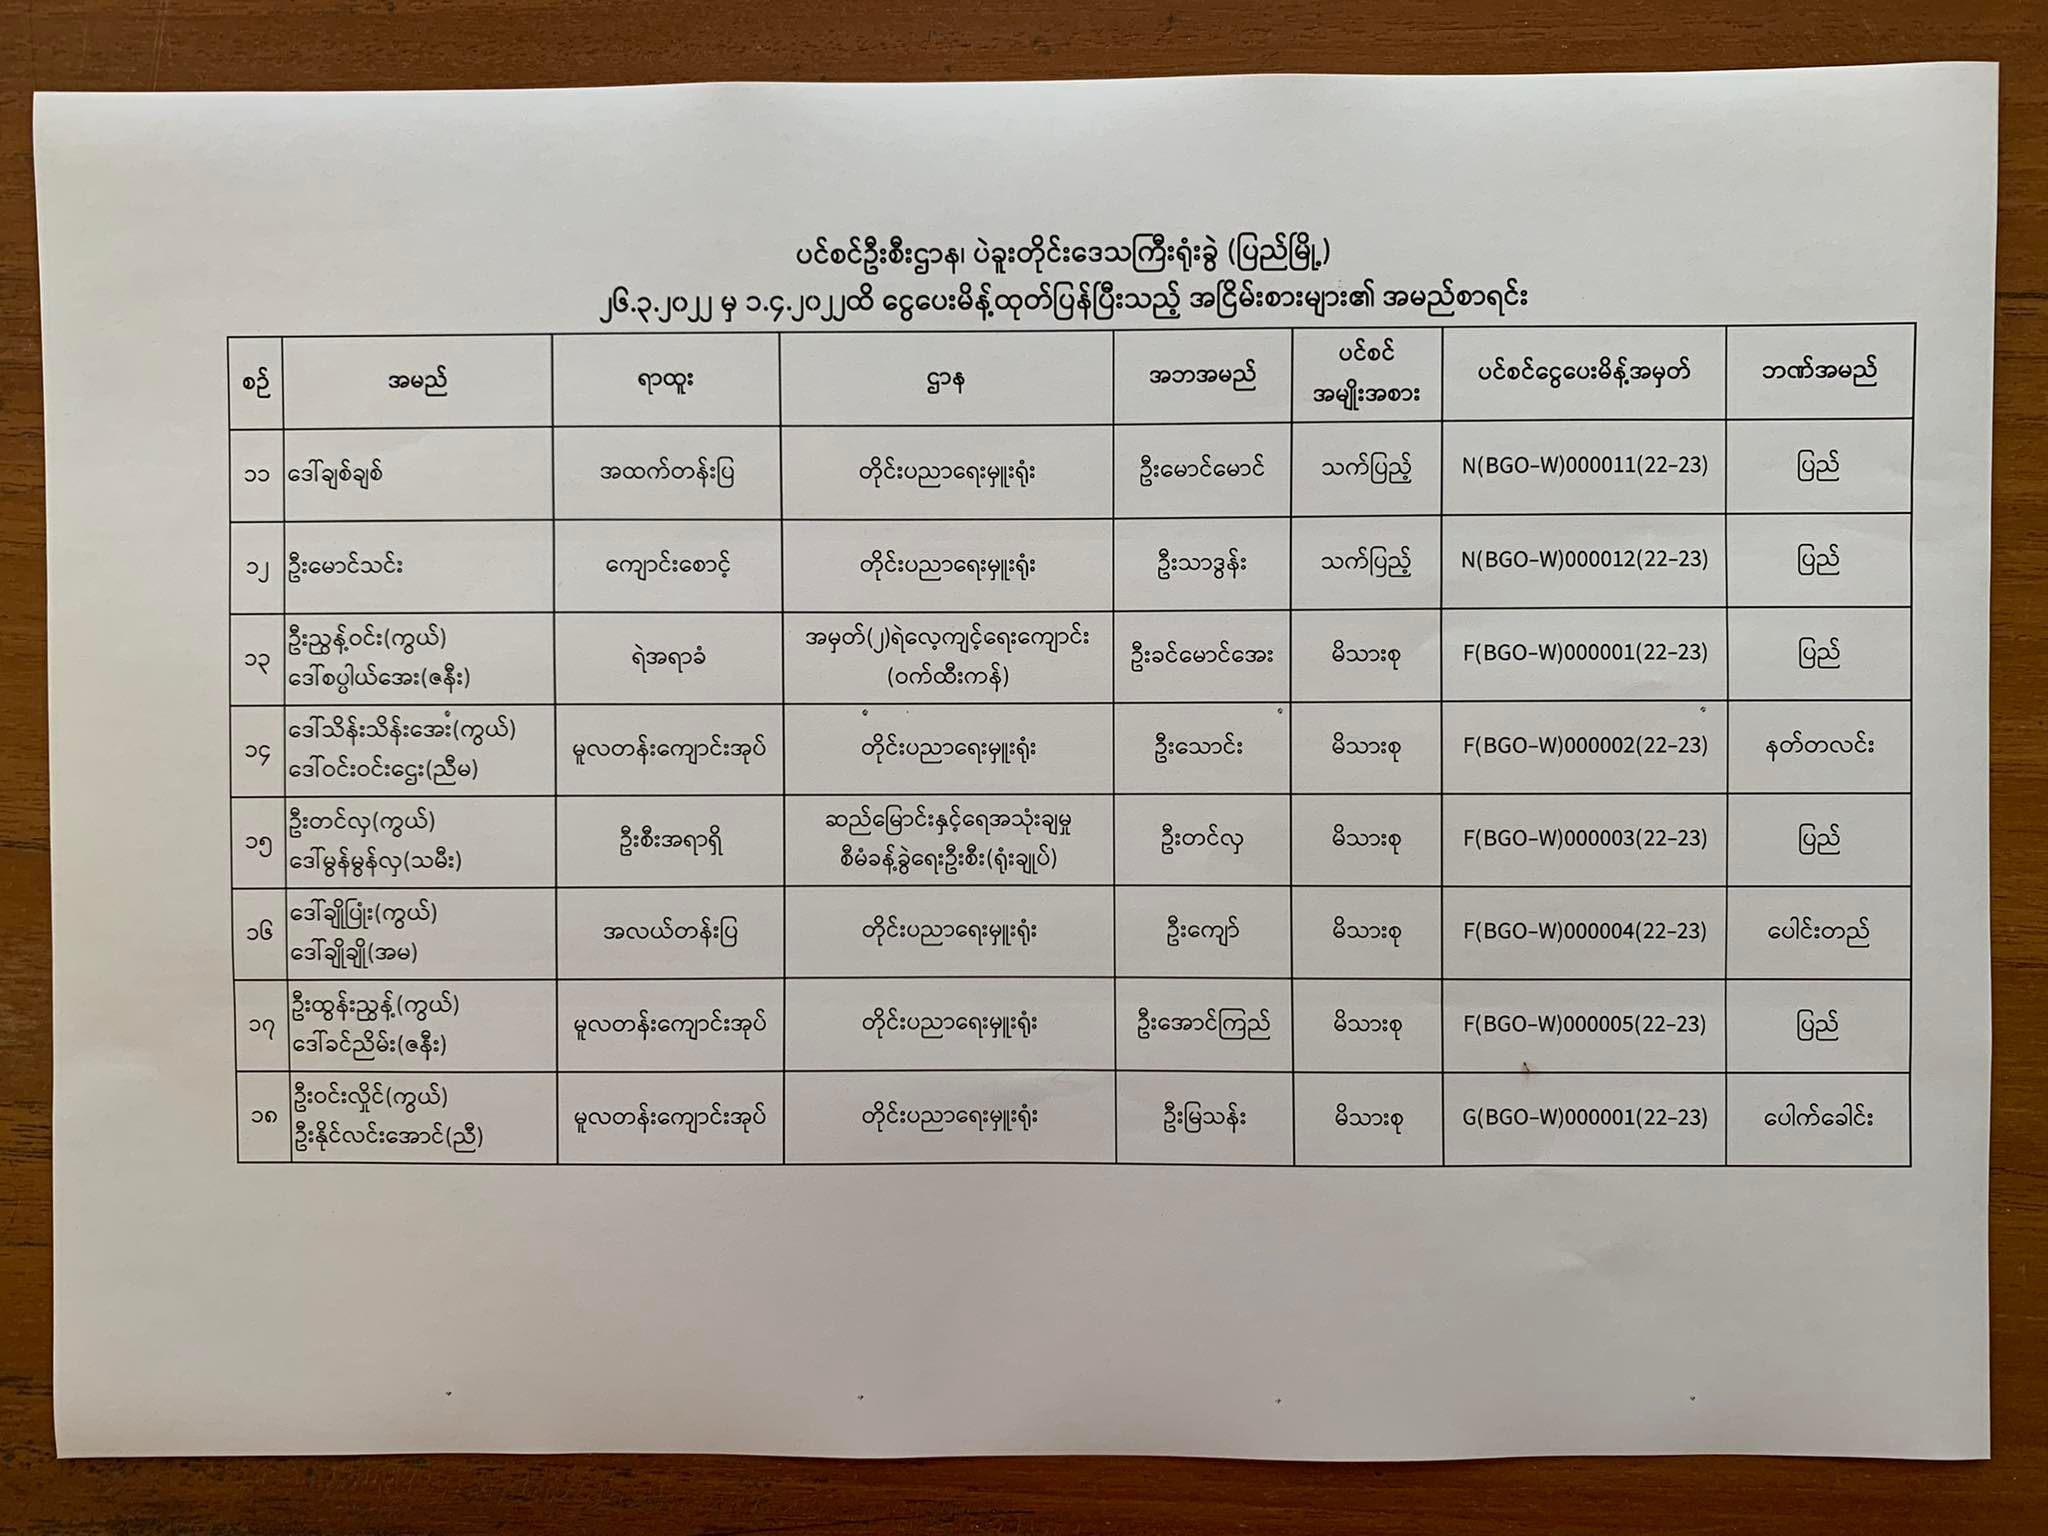 ပင်စင်ဦးစီးဌာန၊ ပဲခူးတိုင်းဒေသကြီးရုံးခွဲ (ပြည်မြို့)
၂၆.၃.၂၀၂၂ မှ ၁.၄.၂၀၂၂ထိ ငွေပေးမိန့်ထုတ်ပြန်ပြီးသည့် အငြိမ်းစားများ၏ အမည်စာရင်း
စဉ် အမည် ရာထူး ဌာန အဘအမည် ပင်စင် အမျိုးအစား ပင်စင်ငွေပေးမိန့်အမှတ် ဘဏ်အမည်
၁၁ ဒေါ်ချစ်ချစ် အထက်တန်းပြ တိုင်းပညာရေးမှူးရုံး ဦးမောင်မောင် သက်ပြည့် N(BGO-W)000011(22-23) ပြည်
၁၂ ဦးမောင်သင်း ကျောင်းစောင့် တိုင်းပညာရေးမှူးရုံး ဦးသာဒွန်း သက်ပြည့် N(BGO-W)000012(22-23) ပြည်
၁၃ ဦးညွန့်ဝင်း(ကွယ်) ဒေါ်စပ္ပါယ်အေး(ဇနီး) ရဲအရာခံ အမှတ်(၂)ရဲလေ့ကျင့်ရေးကျောင်း (ဝက်ထီးကန်) ဦးခင်မောင်အေး မိသားစု F(BGO-W)000001(22-23) ပြည်
၁၄ ဒေါ်သိန်းသိန်းအေး(ကွယ်) ဒေါ်ဝင်းဝင်းဌေး(ညီမ) မူလတန်းကျောင်းအုပ် တိုင်းပညာရေးမှူးရုံး ဦးသောင်း မိသားစု F(BGO-W)000002(22-23) နတ်တလင်း
၁၅ ဦးတင်လှ(ကွယ်) ဒေါ်မွန်မွန်လှ(သမီး) ဦးစီးအရာရှိ ဆည်မြောင်းနှင့်ရေအသုံးချမှု စီမံခန့်ခွဲရေးဦးစီး(ရုံးချုပ်) ဦးတင်လှ မိသားစု F(BGO-W)000003(22-23) ပြည်
၁၆ ဒေါ်ချိုပြုံး(ကွယ်) ဒေါ်ချိုချို(အမ) အလယ်တန်းပြ တိုင်းပညာရေးမှူးရုံး ဦးကျော် မိသားစု F(BGO-W)000004(22-23) ပေါင်းတည်
၁၇ ဦးထွန်းညွန့်(ကွယ်) ဒေါ်ခင်ညိမ်း(ဇနီး) မူလတန်းကျောင်းအုပ် တိုင်းပညာရေးမှူးရုံး ဦးအောင်ကြည် မိသားစု F(BGO-W)000005(22-23) ပြည်
၁၈ ဦးဝင်းလှိုင်(ကွယ်) ဦးနိုင်လင်းအောင်(ညီ) မူလတန်းကျောင်းအုပ် တိုင်းပညာရေးမှူးရုံး ဦးမြသန်း မိသားစု G(BGO-W)000001(22-23) ပေါက်ခေါင်း